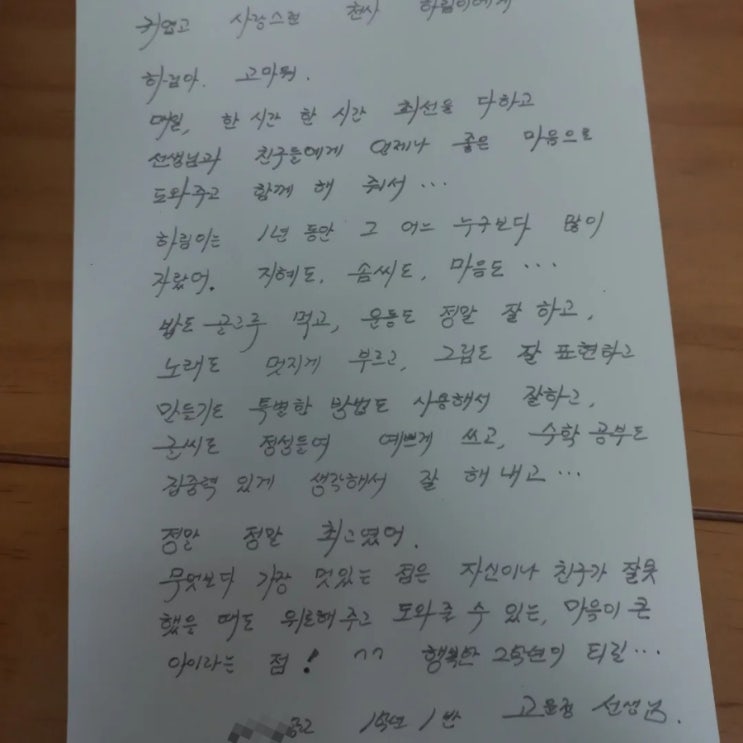 귀엽고 사랑스런 천사 하림이에게
하림아. 고마워.
매일, 한 시간 한 시간 최선을 다하고
선생님과 친구들에게 언제나 좋은 마음으로
도와주고 함께 해 줘서...
하림이는 1년 동안 그 어느 누구보다 많이
자랐어. 지혜도, 솜씨도, 마음도...
밥도 골고루 먹고, 운동도 정말 잘 하고,
노래도 멋지게 부르고, 그림도 잘 표현하고
만들기도 특별한 방법도 사용해서 잘하고,
글씨도 정성들여 예쁘게 쓰고, 수학 공부도
집중력 있게 생각해서 잘 해 내고...
정말 정말 최고였어.
무엇보다 가장 멋있는 점은 자신이나 친구가 잘못
했을 때도 위로해 주고 도와줄 수 있는, 마음이 큰
아이라는 점! ^^ 행복한 2학년이 되길...
1학년 1반 선생님.